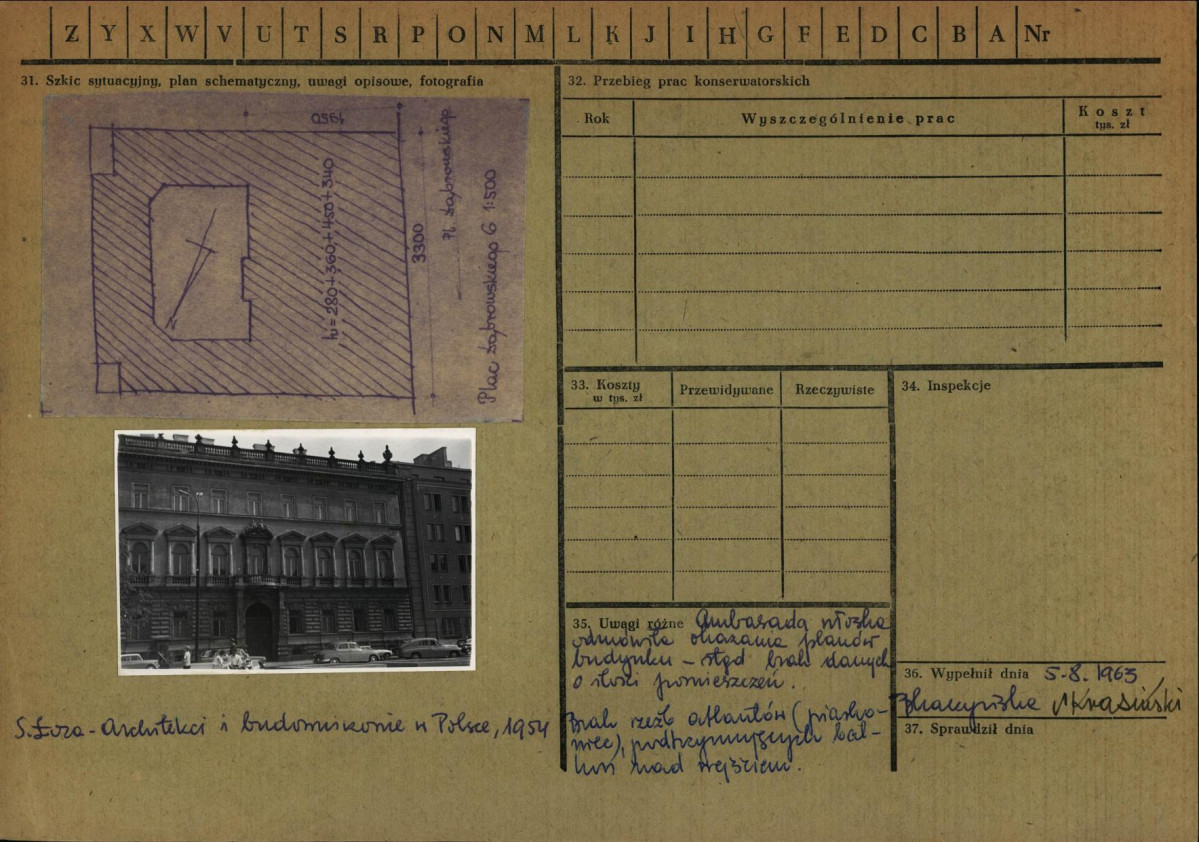 Z Y X W V U T S R P O N M L K J I H G F E D C B A Nr
31. Szkic sytuacyjny, plan schematyczny, uwagi opisowe, fotografia
1950
hw=280+360+450+340
3300
Pl. Dąbrowskiego
Plac Dąbrowskiego 6 1:500
N
S. Łoza - Architekci i budowniczowie w Polsce, 1954
32. Przebieg prac konserwatorskich
Rok
Wyszczególnienie prac
Koszt
tys. zł
33. Koszty
w tys. zł
Przewidywane
Rzeczywiste
34. Inspekcje
35. Uwagi różne Ambasada włoska
odmówiła okazania planów
budynku – stąd brak danych
o ilości pomieszczeń.
Brak rzeźb atlantów (piasko-
wiec), podtrzymujących bal-
kon nad wejściem.
36. Wypełnił dnia 5-8.1963
Krasiński
37. Sprawdził dnia